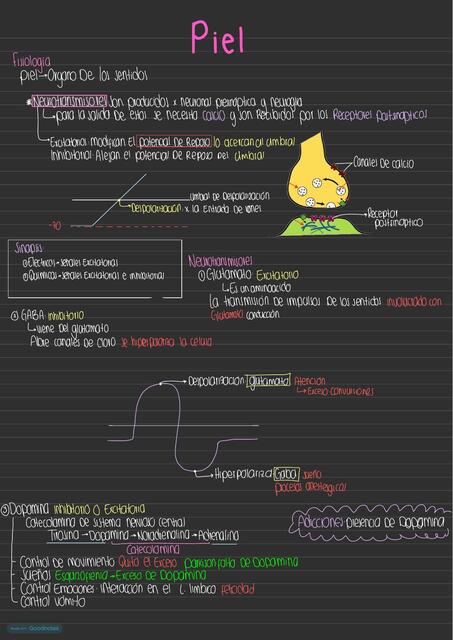 Piel
Fisiologia
Piel → Organo De los sentidos
*Neurotransmisores Son producidos x neurona presinaptica y neuroglia
para la salida de estos se necesita calcio y son Recibidos por los Receptores postsinapticos
Excitatorios: modifican el potencial De Reposo lo acercan al umbral
Inhibitorios: Alejan el potencial De Reposo Del umbral
Canales De calcio
Umbral De Despolarización
Despolarización x la Entrada De iones
-70
Receptor
postsinaptico
Sinapsis
① Electricas → señales Excitatorias
② Quimicas → señales Excitatorias e inhibitorias
Neurotransmisores
① Glutamato Excitatorio
Es un aminoacido
la transmisión De impulsos De los sentidos involucrado con
Glutamato conducción
② GABA inhibitorio
viene Del glutamato
Abre canales De cloro se hiperpolariza la celula
Despolarización Glutamato Atención
Exceso-convulsiones
Hiperpolariza Gaba sueño
procesos anestesicos
③ Dopamina inhibitorio O Excitatorio
Catecolamina De Sistema nervioso central
Tirosina → Dopamina → Noradrenalina → Adrenalina
Catecolamina
Adicciones: presencia De Dopamina
- Control De movimiento Quita el Exceso Parkinson falta De Dopamina
- Sueños Esquizofrenia → Exceso De Dopamina
- Control Emociones: interacción en el S. limbico felicidad
- Control vómito
Made with Goodnotes